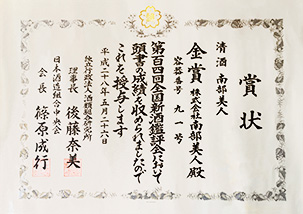 賞状
清酒 南部美人
金賞 株式会社南部美人殿
容器番号 九一号
第百四回全国新酒鑑評会において
頭書の成績を収められましたので
これを授与します
平成二十八年五月二十六日
独立行政法人 酒類総合研究所
理事長 後藤奈美
日本酒造組合中央会
会長 篠原成行